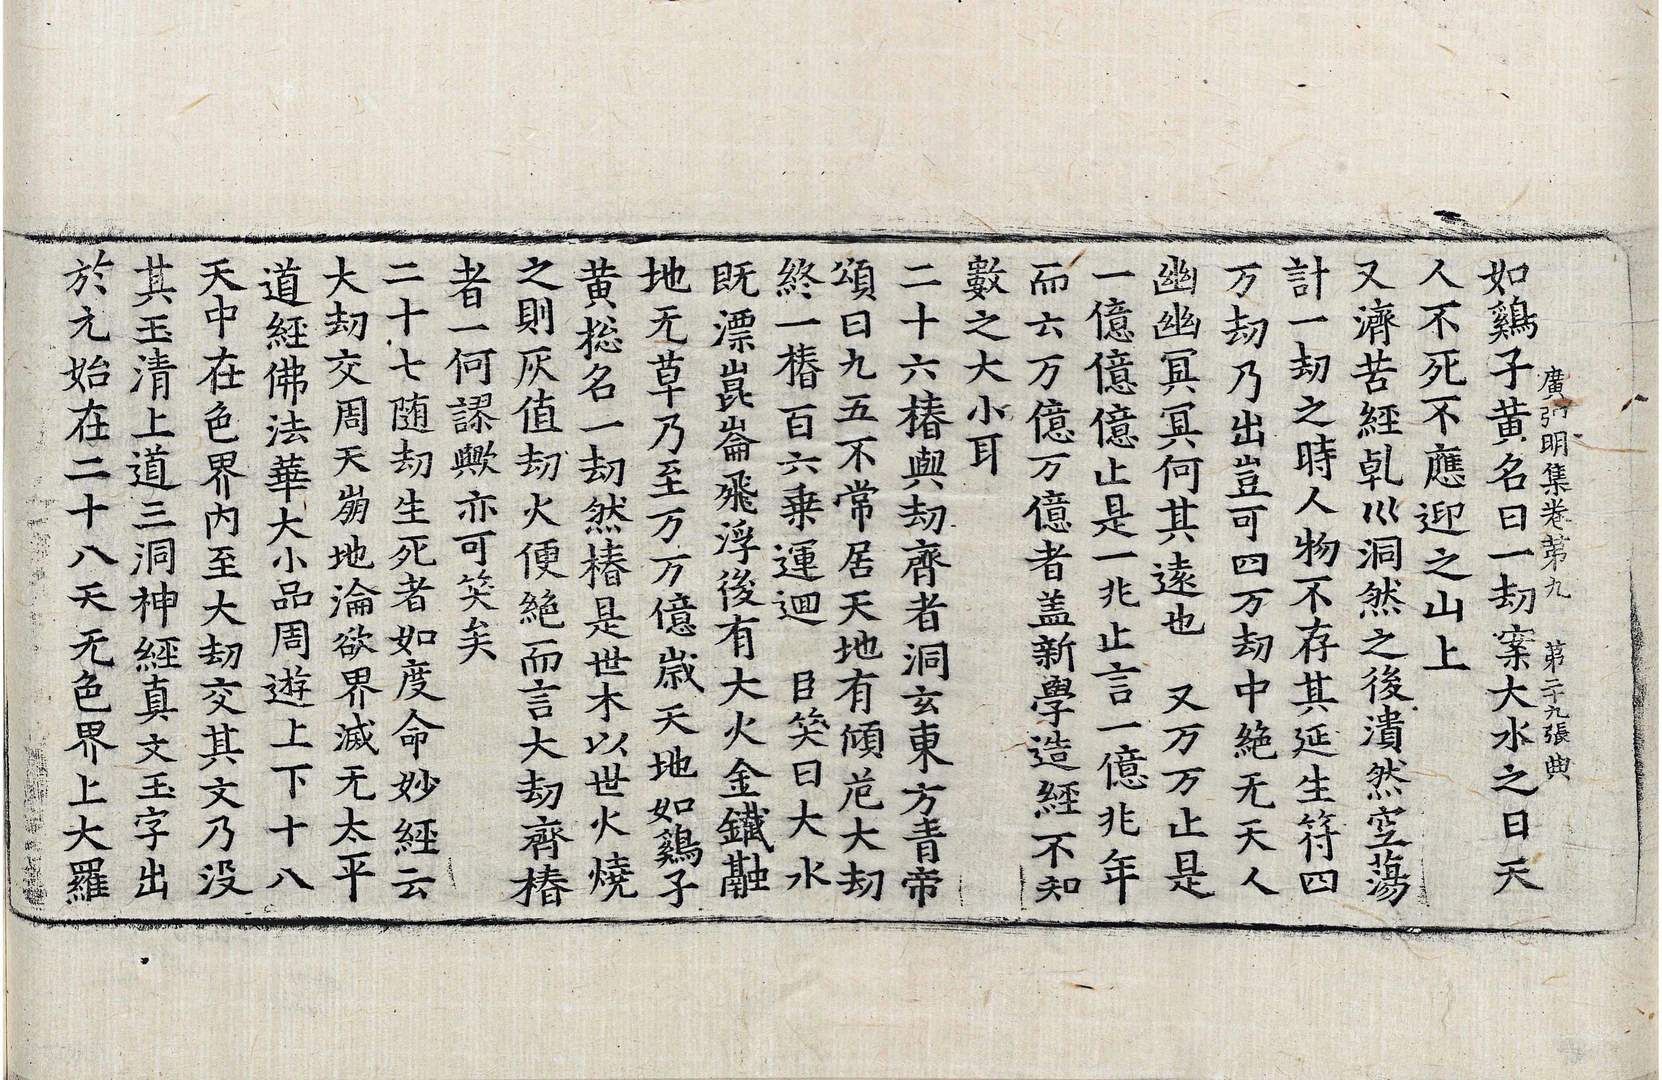 廣弘明集卷第九　第二十九張典
如鷄子黃名曰一劫案大水之日天
人不死不應迎之山上
又濟苦經乹巛洞然之後潰然空蕩
計一劫之時人物不存其延生符四
万劫乃出豈可四万劫中絶无天人
幽幽冥冥何其遠也　又万万止是
一億億億止是一兆止言一億兆年
而六万億万億者盖新學造經不知
數之大小耳
二十六椿與劫齊者洞玄東方青帝
頌曰九五不常居天地有傾危大劫
終一椿百六乗運迴　臣笑曰大水
既漂崑崙飛浮後有大火金鐵融
地无草乃至万万億歳天地如鷄子
黃捴名一劫然椿是世木以世火燒
之則灰值劫火便絶而言大劫齊椿
者一何謬歟亦可笑矣
二十七随劫生死者如度命妙經云
大劫交周天崩地淪欲界滅无太平
道經佛法華大小品周遊上下十八
天中在色界内至大劫交其文乃没
其玉清上道三洞神經真文玉字出
於元始在二十八天无色界上大羅